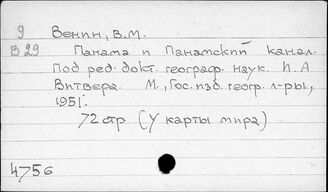 9 Венин, В.М.
В 29 Панама и Панамский канал.
Под ред. докт. географ. наук. И.А
Витвера. М., Гос. изд. геогр. л-ры,
1951.
72 стр (У карты мира)
4756